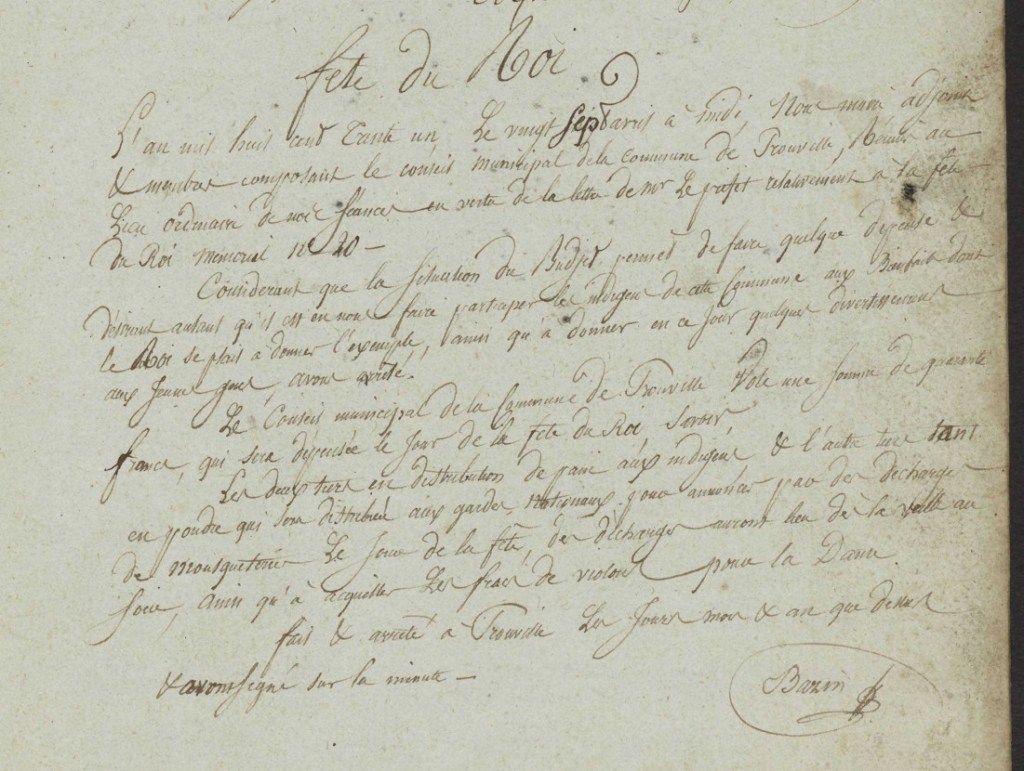 fête du Roi
L'an mil huit cent trente un, Le vingt sept avril à midi, Nous maire adjoint
& membres composant le conseil municipal de la commune de Trouville, Réunis au
Lieu ordinaire de nos Séances en vertu de la lettre de Mr Le préfet relativement à la fête
du Roi mémorial No 20 —
Considérant que la situation du Budjet permet de faire quelque dépense &
Désirant autant qu'il est en nous faire participer les indigens de cette Commune aux Bienfaits dont
le Roi se plait à donner l'exemple, ainsi qu'à donner en ce Jour quelques divertissemens
aux Jeunes gens, avons arrêté.
Le Conseil municipal de la Commune de Trouville Vote une somme de quarante
francs, qui sera dépensée le Jour de la fête du Roi, Savoir,
Les deux tiers en distribution de pain aux indigens & l'autre tiers tant
en poudre qui sera distribuée aux gardes nationaux pour annoncer par des décharges
de mousqueterie Le Jour de la fête, des décharges auront lieu dès la veille au
soir, ainsi qu'à acquitter Les frais de violons pour la Danse
fait & arrêté à Trouville Les Jours mois & an que dessus
& avons signé sur la minute —
Bazin